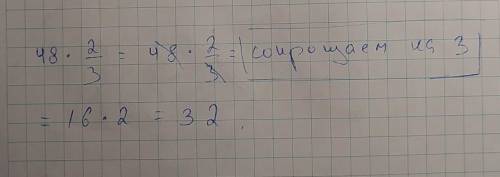 48 · 2/3 = 48 · 2/3 = сокрощаем на 3
= 16 · 2 = 32.